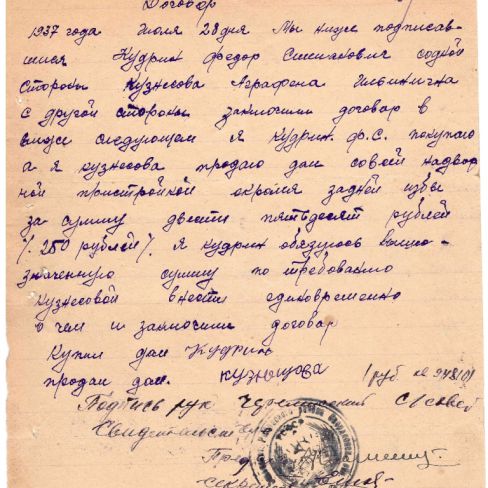 Договор
1937 года Июля 28 дня Мы ниже подписав-
шиеся Кудрин Федор Симикович содной
стороны Кузнесова Аграфена Ильинична
с другой стороны заключили договор в
ниже следующем я Кудрин Ф.С. покупаю
а я Кузнесова продаю дом совсей надвор
ной пристройкой окромя задней избы
за сумму двести пятьдесят рублей
/. 250 рублей /. Я Кудрин обязуюсь выше-
означенную сумму по требованию
Кузнесовой внести единовременно
о чем и заключили договор
Купил дом Кудрин
продал дом. Кузнецова 1 руб №
Подпись рук
Свидетельст
Пред
секре